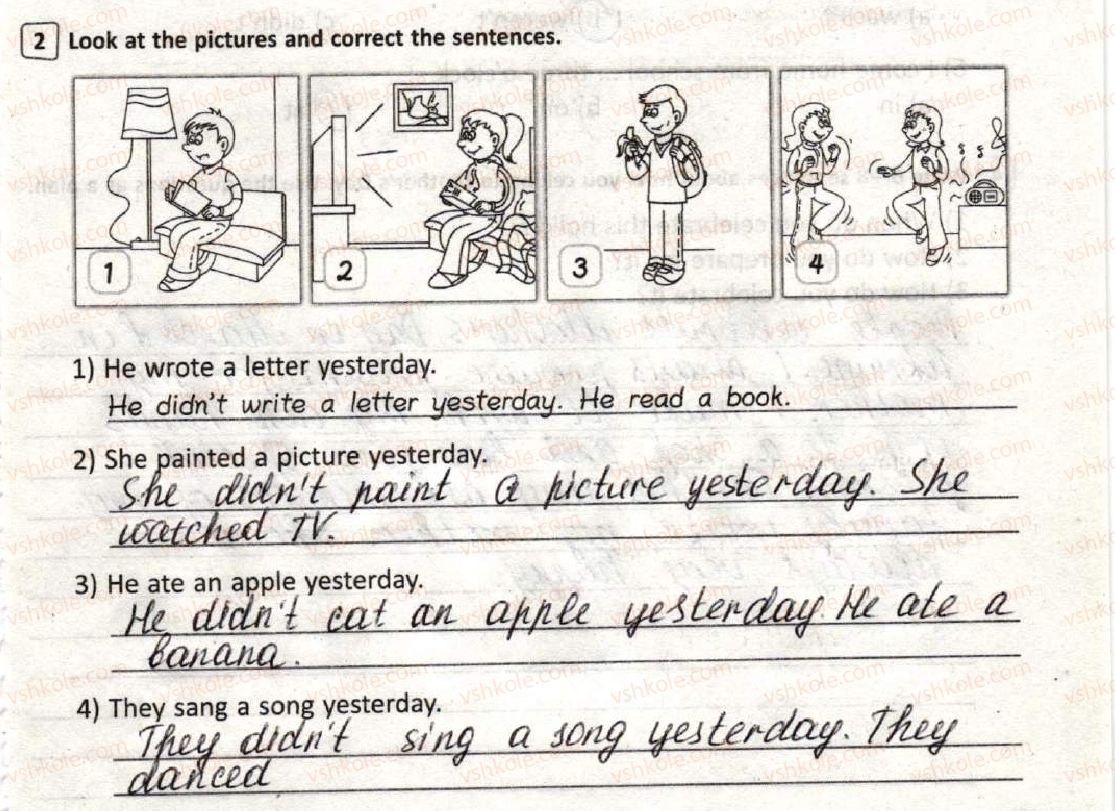 2 Look at the pictures and correct the sentences.
1
2
3
4
1) He wrote a letter yesterday.
He didn't write a letter yesterday. He read a book.
2) She painted a picture yesterday.
She didn't paint a picture yesterday. She
watched TV.
3) He ate an apple yesterday.
He didn't eat an apple yesterday. He ate a
banana.
4) They sang a song yesterday.
They didn't sing a song yesterday. They
danced
vshkole.com